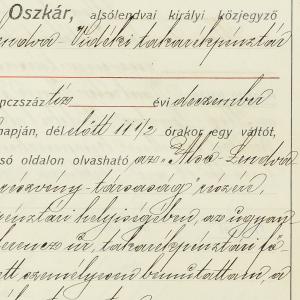 Oszkár, alsólendvai királyi közjegyző
Lendva-Vidéki takarékpénztár
nczszáz tíz évi deczember
napján, dél előtt 11 1/2 órakor egy váltót,
só oldalon olvasható, az "Alsó-Lendva
részvény-társaság" részén,
pénztári helyiségében, az ugyan
Ferencz úr, takarékpénztári fő-
ett személyesen bemutattam, a